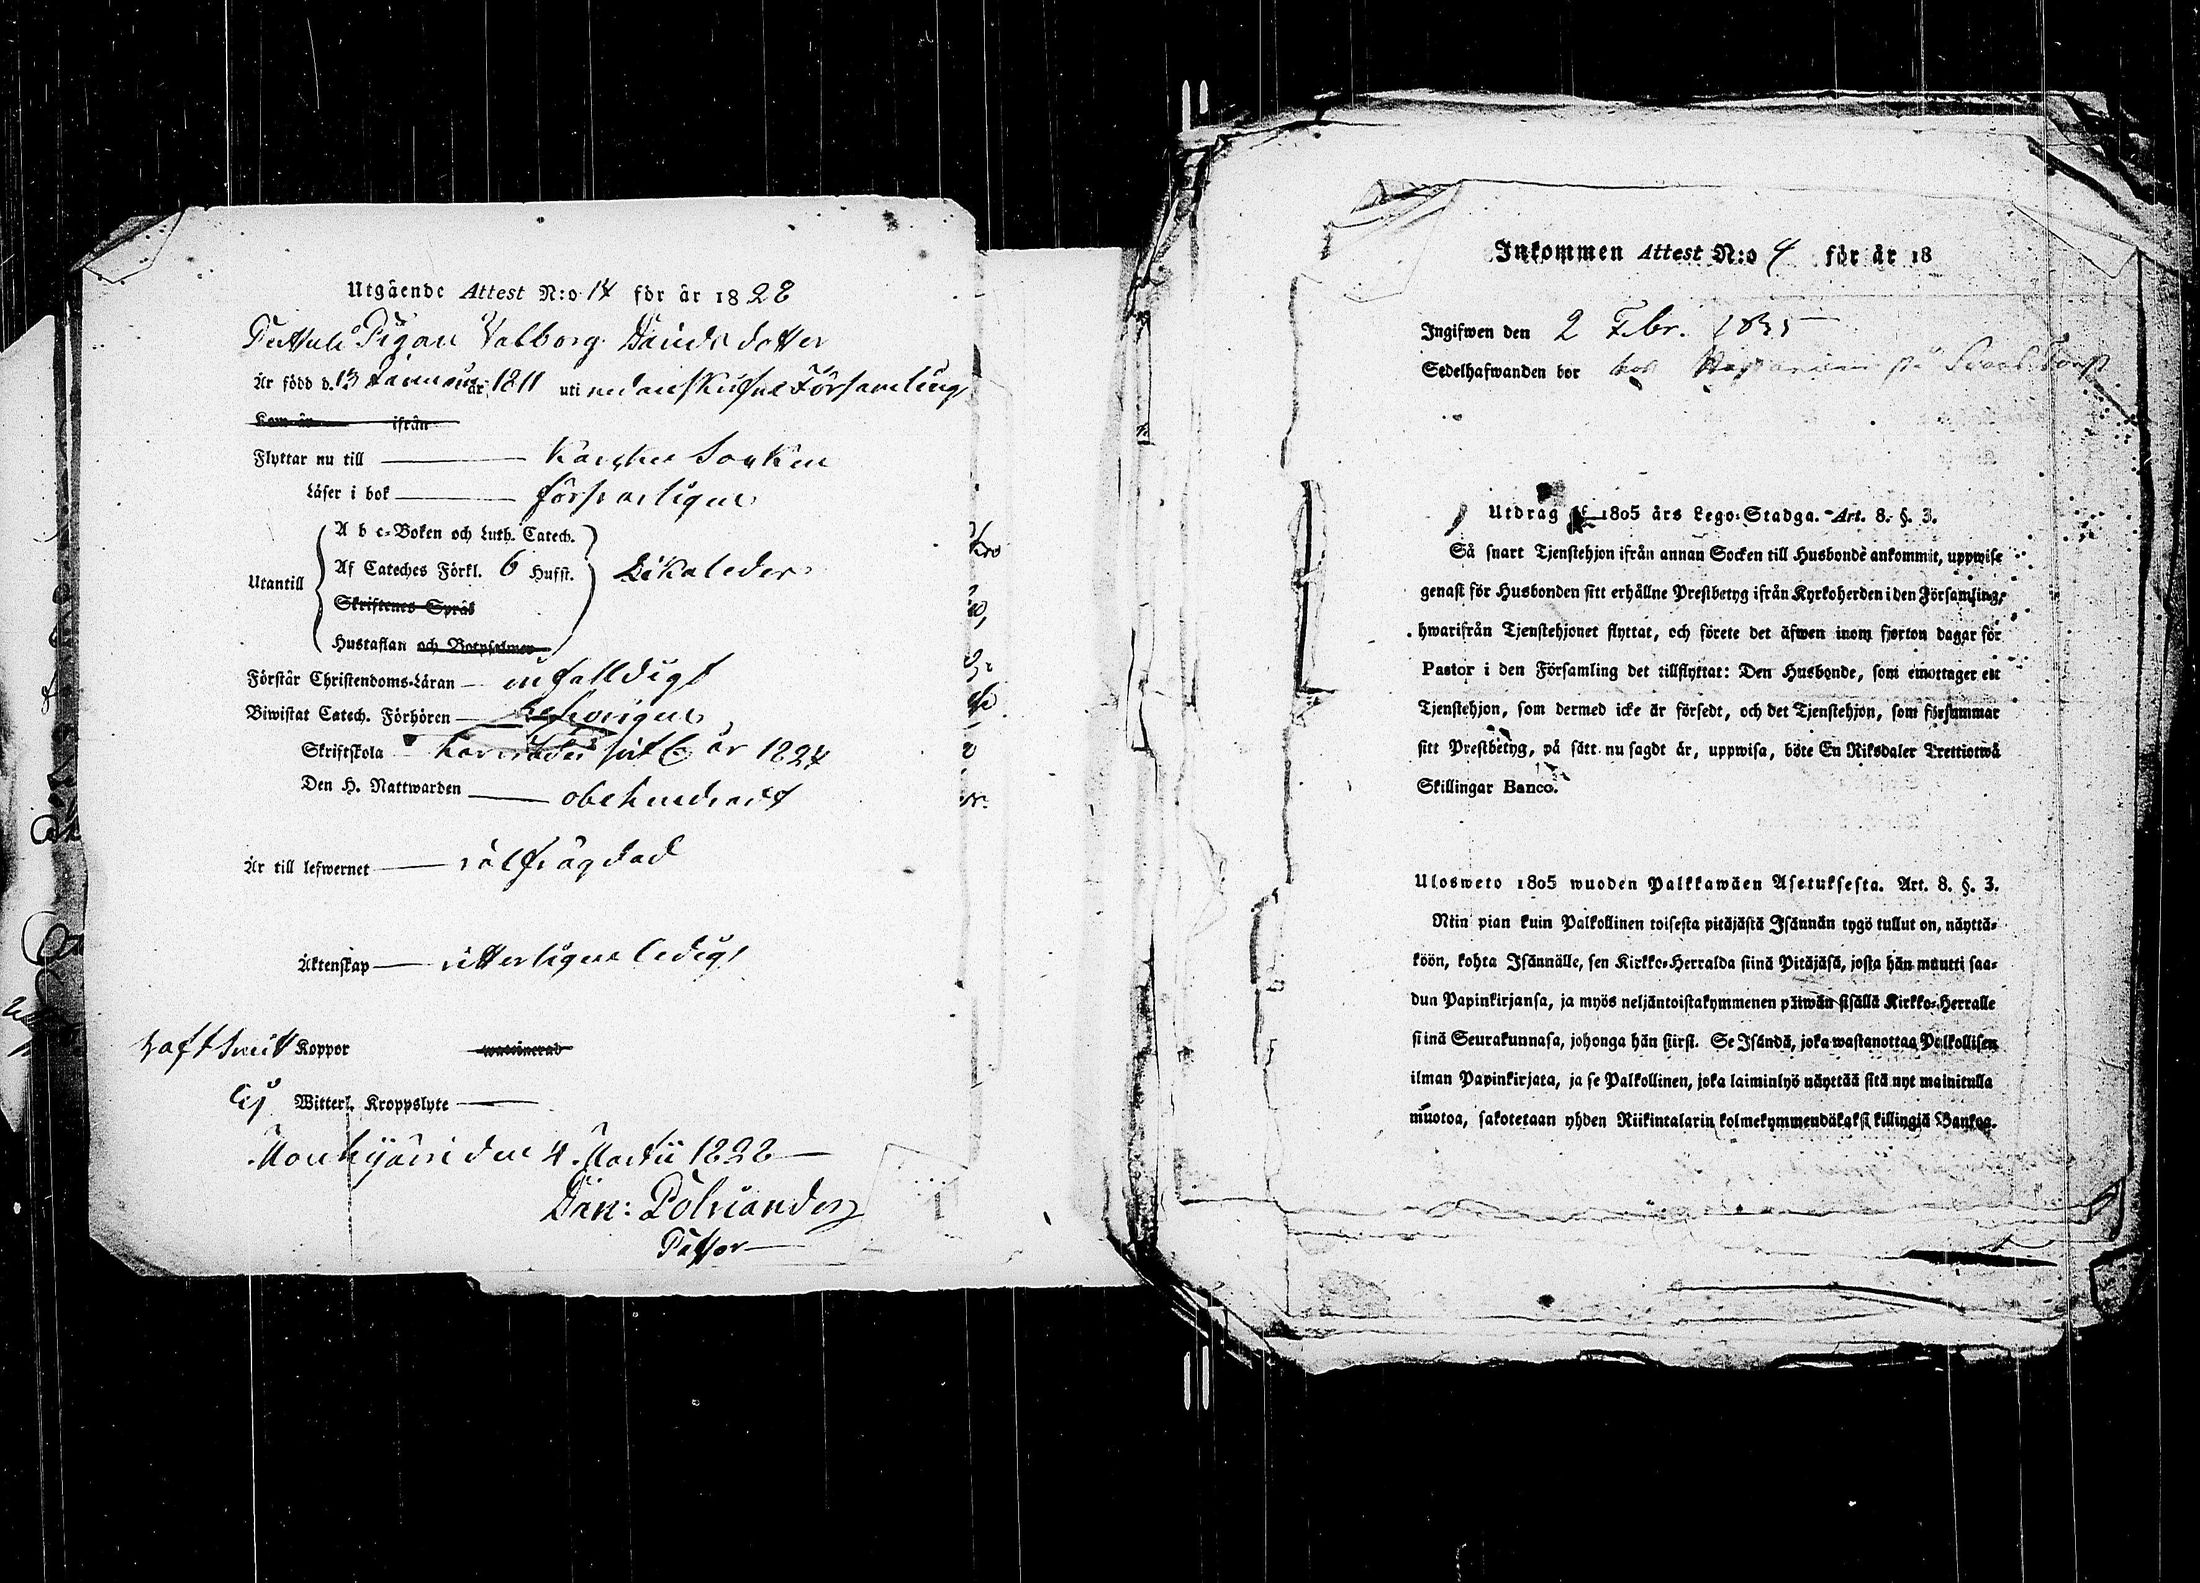 Utgående Attest N:o 14 för år 1828
Pigan Valborg Davidsdotter
Är född d. 13 Januari år 1811 uti nedanskrefne Församling
Kom år ifrån
Flyttar nu till Socken
Läser i bok försvarligen
A b c-Boken och Luth. Catech.
Utantill Af Cateches Förkl. 6 Hufst. Likaledes
Skriftenes Språk
Hustaflan och Botpsalmer
Förstår Christendoms-Läran enfalldigt
Biwistat Catech. Förhören behörigen
Skriftskola sist år 1824
Den H. Nattwarden obehindradt
Är till lefwernet välfrägdad
Äktenskap vitterligen ledig
Haft Koppor waccinerad
Ej Witterl. Kroppslyte
Mouhijärvi den 4 Martii 1828
Dan: Polviander
Pastor
Inkommen Attest N:o 4 för år 18
Ingifwen den 2 Febr. 1835
Sedelhafwanden bor hos på Torp
Utdrag af 1805 års Lego-Stadga. Art. 8. §. 3.
Så snart Tjenstehjon ifrån annan Socken till Husbonde ankommit, uppwise
genast för Husbonden sitt erhållne Prestbetyg ifrån Kyrkoherden i den Församling,
hwarifrån Tjenstehjonet flyttat, och förete det äfwen inom fjorton dagar för
Pastor i den Församling det tillflyttat: Den Husbonde, som emottager ett
Tjenstehjon, som dermed icke är försedt, och det Tjenstehjon, som försummar
sitt Prestbetyg, på sätt nu sagdt är, uppwisa, böte En Riksdaler Trettiotwå
Skillingar Banco.
Ulosweto 1805 wuoden Palkkawäen Asetuksesta. Art. 8. §. 3.
Niin pian kuin Palkollinen toisesta pitäjästä Isännän tygö tullut on, näyttä-
köön, kohta Isännälle, sen Kirkko-Herralda siinä Pitäjäsä, josta hän muutti saa-
dun Papinkirjansa, ja myös neljäntoistakymmenen päiwän sisällä Kirkko-Herralle
siinä Seurakunnasa, johonga hän siirsi. Se Isändä, joka wastanottaa Palkollisen
ilman Papinkirjata, ja se Palkollinen, joka laiminlyö näyttää sitä nyt mainitulla
muotoa, sakotetaan yhden Riikintalarin kolmekymmendäkaksi killingiä Bankoa.